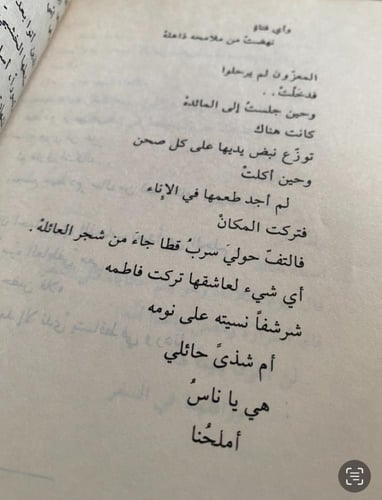 وأي فتاة
نهضتْ من ملامحه ذاهلهْ
المعزّون لم يرحلوا
فدخلتُ . .
وحين جلستُ إلى المائدهْ
كانت هناك
توزّع نبض يديها على كل صحن
وحين أكلتْ
لم أجد طعمها في الإناء
فتركت المكانْ
فالتفّ حوليَ سربُ قطا جاءَ من شجر العائلهْ .
أي شيء لعاشقها تركت فاطمه
شرشفاً نسيته على نومه
أم شذىً حائلي
هي يا ناسُ
أملحُنا